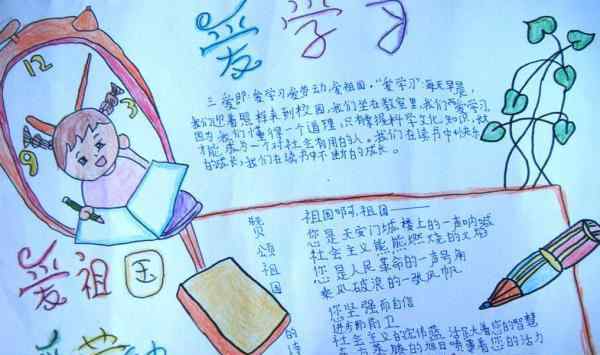 爱学习
12
3
9
三爱即:爱学习爱劳动,爱祖国,"爱学习"每天早晨,
我们迎着照样来到校园,我们坐在教室里,我们爱学习,
因为我们懂得一个道理,只有懂得科学文化知识,
才能成为一个对社会有用的人。我们在读书中
的成长,我们在读书中不断的成长。
爱祖国
赞颂祖国的诗
祖国啊,祖国——
您是天安门城楼上的一声呐喊
社会主义能熊燃烧的火焰
您是人民革命的一声号角
乘风破浪的一张风帆
您坚强而自信
社会主义的
您的智慧
您的活力